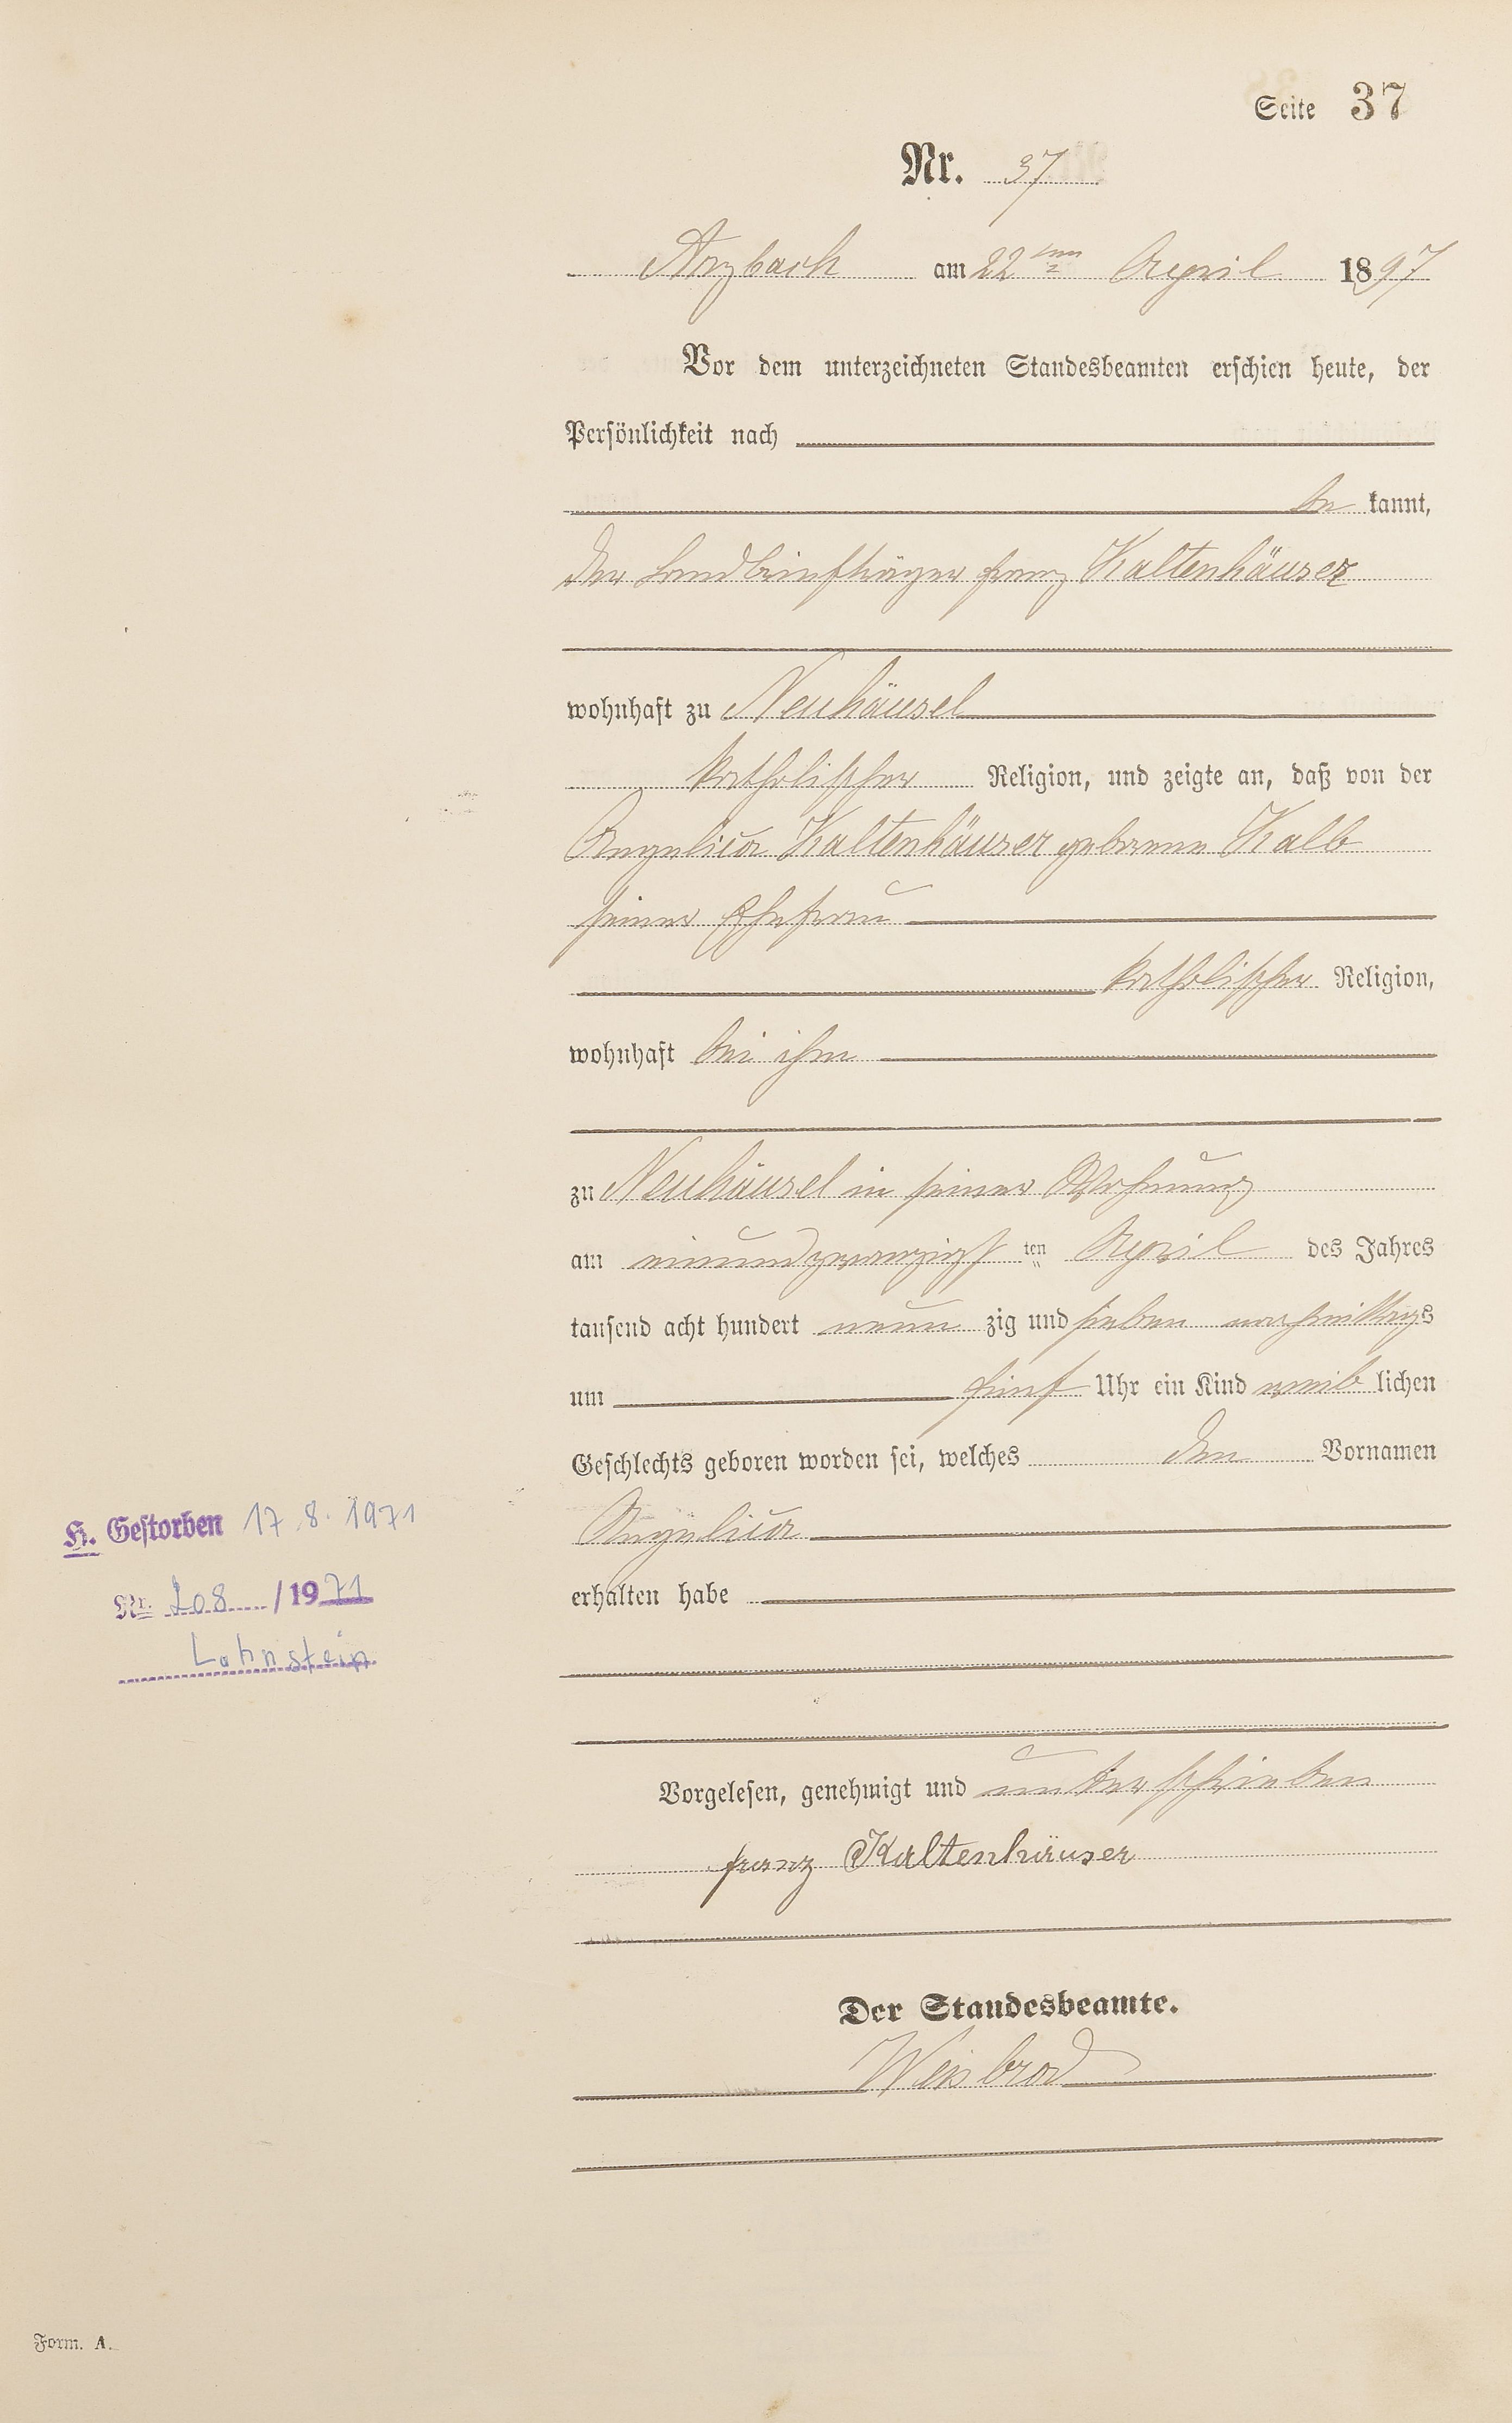 Seite 37
Nr. 37
Arzbach am 22ten April 1897
Vor dem unterzeichneten Standesbeamten erschien heute, der
Persönlichkeit nach
be kannt,
der Landbriefträger Franz Kaltenhäuser
wohnhaft zu Neuhäusel
katholischer Religion, und zeigte an, daß von der
Angelica Kaltenhäuser geborene Kalb
seiner Ehefrau
katholischer Religion,
wohnhaft bei ihm
zu Neuhäusel in seiner Wohnung
am einundzwanzigsten April des Jahres
tausend acht hundert neunzig und sieben nachmittags
um fünf Uhr ein Kind weiblichen
Geschlechts geboren worden sei, welches den Vornamen
Angelica
erhalten habe
H. Gestorben 17.8.1971
Nr. 208 / 1971
Lahnstein
Vorgelesen, genehmigt und unterschrieben
Franz Kaltenhäuser
Der Standesbeamte.
Weisbrod
Form. A.